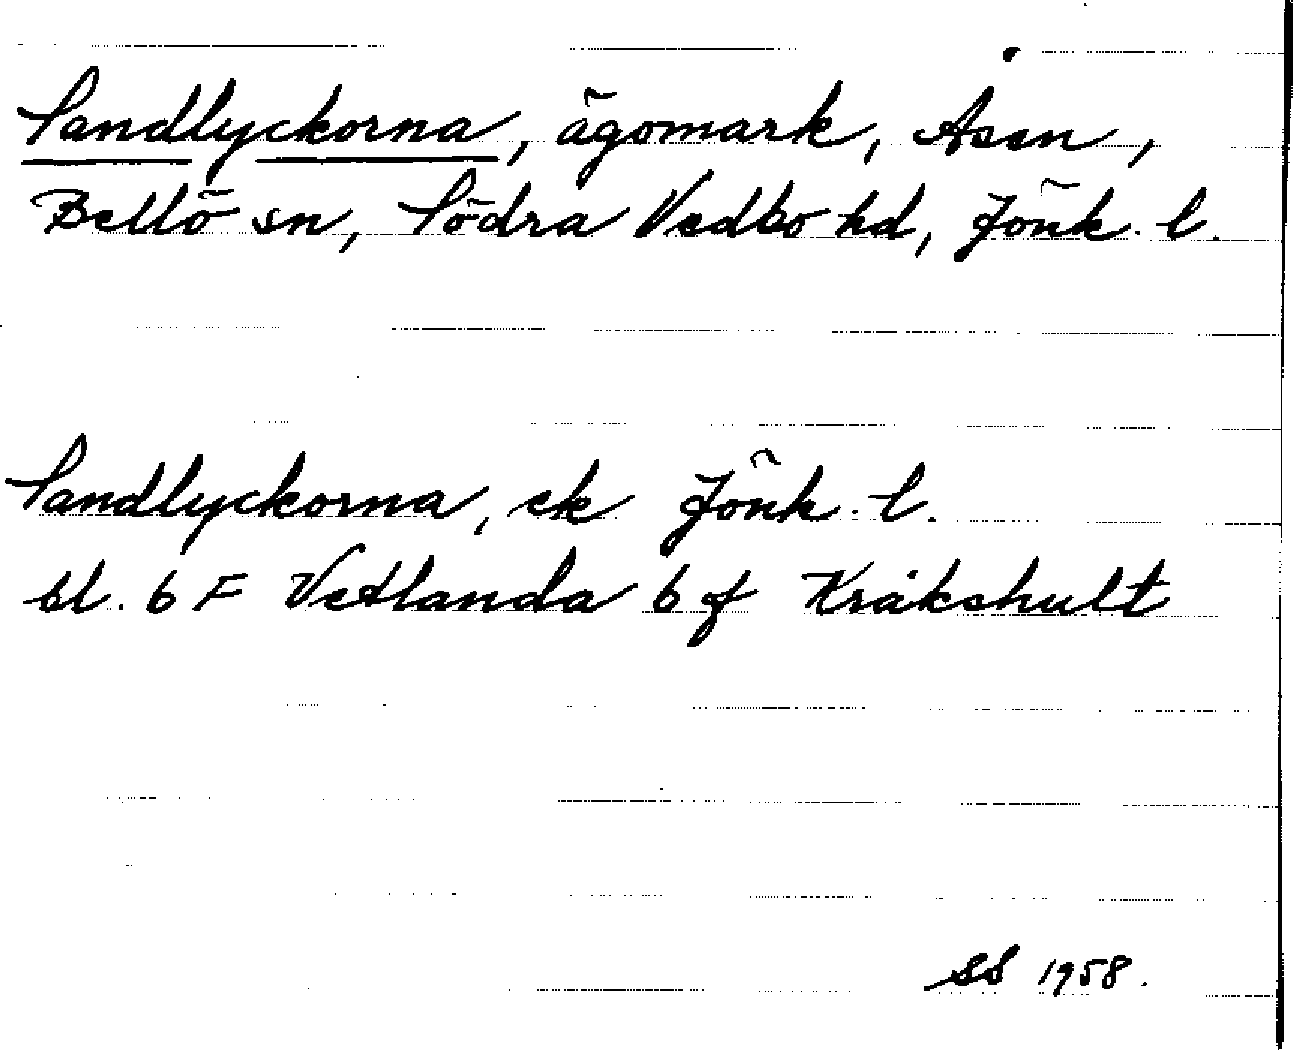 Sandlyckorna, ägomark, Åsen,
Bellö sn, Södra Vedbo hd, Jönk. l.
Sandlyckorna, ek Jönk. l.
bl. 6 F Vetlanda 6 f Kråkshult
SS 1958.